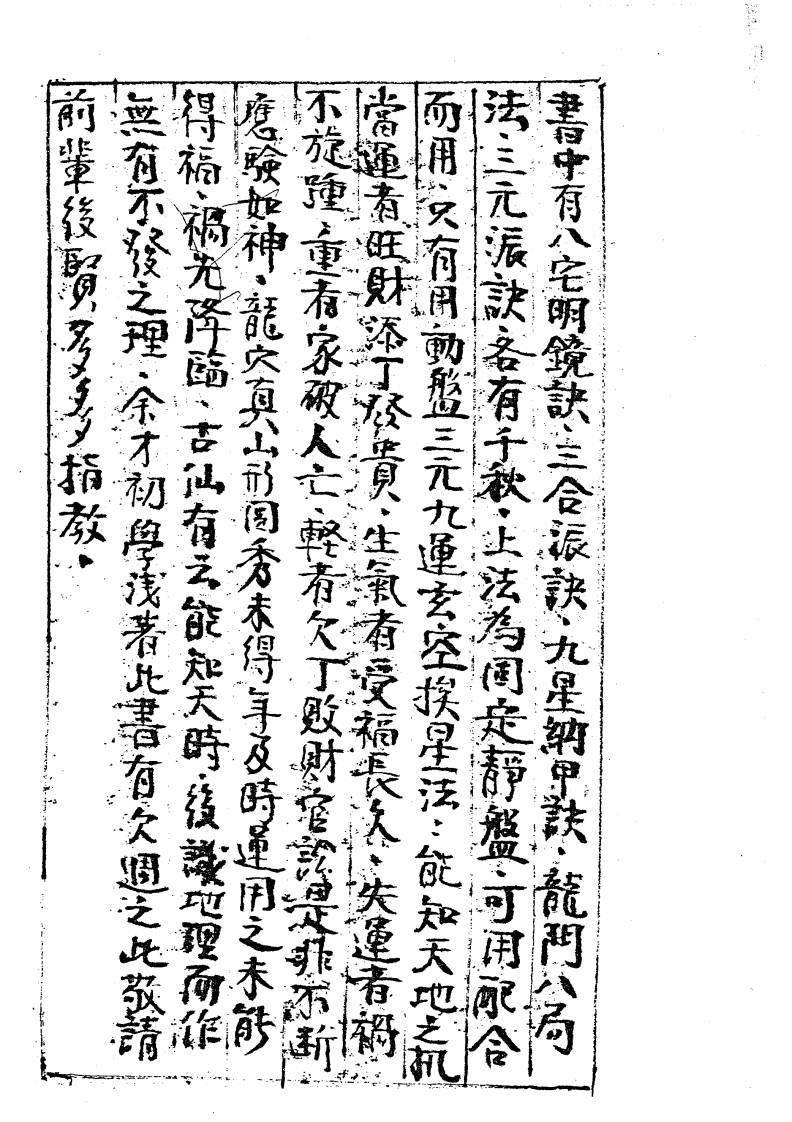 書中有八宅明鏡訣、三合派訣、九星納甲訣、龍門八局
法、三元派訣各有千秋、上法為固定靜盤、可用配合
而用、只有用動盤三元九運玄空挨星法、能知天地之机
當運者旺財添丁發貴、生氣者受福長久、失運者禍
不旋踵、重者家破人亡、輕者欠丁敗財官訟是非不斷
應驗如神、龍穴真山形固秀未得年及時運用之未能
得福、禍先降臨、古仙有云能知天時、後識地理而作
無有不發之理、余才初學淺著此書有欠週之此敬請
前輩後賢多多指教。